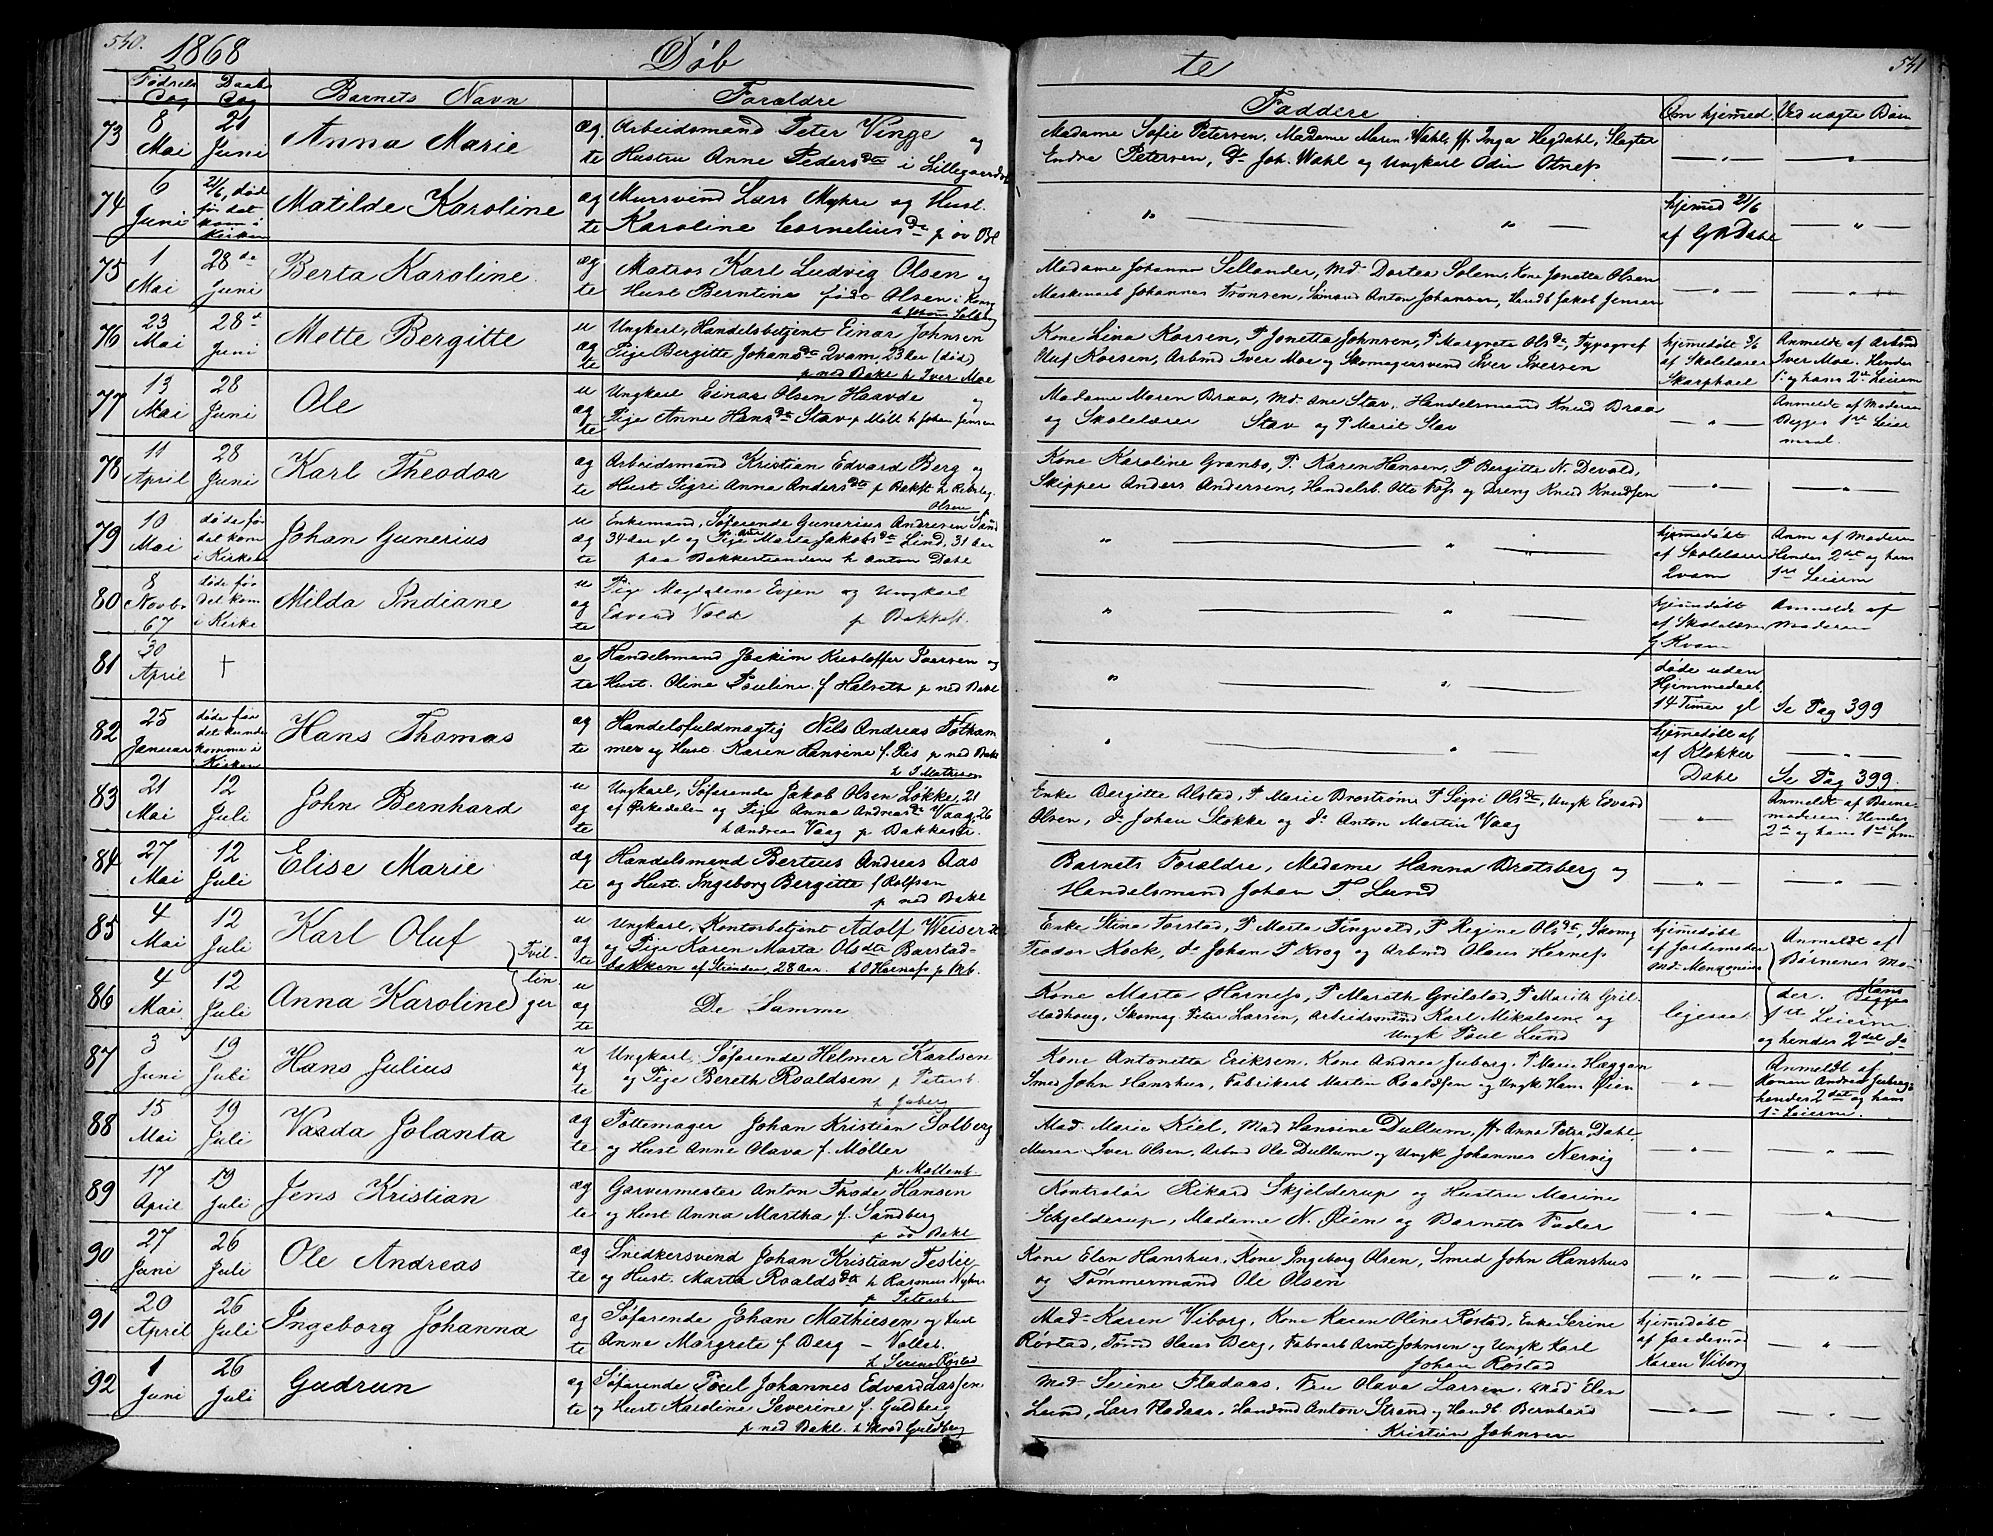 540.
1868
Döb
te
541
Fødsels Dag
Daabs Dag
Barnets Navn
Forældre
Faddere
Om hjemmed.
Ved uægte Börn
73
8 Mai
21 Juni
Anna Marie
ægte
Arbeidsmand Peter Vinge og
Hustru Anne Pedersdtr i Lillegaardsb.
Madame Sofie Petersen, Madame Maren Wahl, Inga Hegdahl, Slagter
Endre Petersen, Joh. Wahl og Ungkarl Odin Otnes
74
6 Juni
21/6, död
för det
kom i
Kirken
Matilde Karoline
ægte
Mursvend Lars Myhre og Hust.
Karoline Cornelius p öv Bl
hjemmd 21/6
af G Dahl
75
1 Mai
28de Juni
Berta Karoline
ægte
Matros Karl Ludvig Olsen og
Hust Berntine född Olsen i
Madame Johanna Sellander, Md. Dortea Solem, Kone Jonetta Olsen
Maskinarb Johannes Tronsen, Sömand Anton Johansen, Handb Jakob Jensen
76
23 Mai
28d Juni
Mette Bergitte
uægte
Ungkarl, Handelsbetjent Einar Johnsen
Pige Bergitte Johansdtr Qvam, 23 Aar (död)
p ned Bakl h Iver Moe
Kone Lina Karsen, P Jonetta Johnsen, P Margrete Olsdtr, Typograf
Oluf Karsen, Arbmd Iver Moe og Skomagersvend Iver Iversen
hjemmedöbt
af Skolelærer
Anmeldt af Arbmd
Iver Moe. Hendes
1 og hans 2det Leierm
77
13 Mai
28 Juni
Ole
uægte
Ungkarl Einar Olsen Haavde og
Pige Anne Hansdtr Stav p Möll h Johan Jensen
Madame Maren Braa, Md. Ane Stav, Handelsmand Knud Braa
og Skolelærer Stav og P Marit Stav
Anmeldt af Moderen
Begges 1ste Leier
maal.
78
11 April
28 Juni
Karl Theodor
ægte
Arbeidsmand Kristian Edvard Berg og
Hust Sigri Anna Andersdtr p Bakst h
Kone Karoline Granbo, P. Karen Hansen, P Bergitte N. Devold,
Skipper Anders Andersen, Handelsb. Otto Foss og Dreng Knud Knudsen
79
10 Mai
döde för
det kom
i Kirken
Johan Gunerius
uægte
Olsen
Enkemand, Söfarende Gunerius Andresen Sand
34 Aar gl og Pige Marta Jakobsdtr Lind, 31 Aar
paa Bakkestranden h Anton Dahl
hjemmedöbt
af Skolelærer
Qvam
Anm af Moderen
Hendes 2det og hans
1ste Leierm
80
8 Novbr 67
döde för
det kom
i Kirke
Milda Indiane
uægte
Pige Magdalena Evjen og Ungkarl
Edvard Vold p Bakkest.
hjemmedöbt
af Skolelærer
Kvam
Anmeldt af
Moderen
81
30 April
†
ægte
Handelsmand Joakim Kristoffer Iversen og
Hust. Oline Pouline f Halseth p ned Bakl
döde uden
Hjemmedaab,
14 Timer gl
Se Pag 399
82
25 Januar
döde för
det kunde
komme i
Kirken
Hans Thomas
ægte
Handelsfuldmægtig Nils Andreas Fotkam
mer og Hust Karen Hansine f. p ned Bakl
h J Mathisen
hjemmedöbt af
af Klokker
Dahl
Se Pag 399.
83
21 Mai
12 Juli
John Bernhard
uægte
Ungkarl, Söfarende Jakob Olsen Løkke, 21
af Orkedalen og Pige Anna Andreasdtr Vaag, 26
h Andrea Vaag p Bakkestr.
Enke Bergitte Alstad, P Marie Broströms P Segri Olsdtr, Ungk Edvard
Olsen, do Johan Stokke og do Anton Martin Vaag
Anmeldt af Barne
moderen. Hendes
2d og hans 1ste Lm
84
27 Mai
12 Juli
Elise Marie
ægte
Handelsmand Bertius Andreas Aas
og Hust. Ingeborg Bergitte f Rolfsen
p ned Bakl
Barnets Forældre, Madame Hanna Bratsberg og
Handelsmand Johan P. Lund
85
4 Mai
12 Juli
Karl Oluf
Tvil-
uægte
Ungkarl, Kontorbetjent Adolf Weiser
og Pige Karen Marta Olsdtr Barstad-
bakken af Strinden, 28 Aar. h O Harness p Mb.
Enke Stina Forstad, P Marta Tingvold, P Regine Olsdtr, Skomg
Teodor Kock, do Johan P Krog og Arbmd Olaus Herness
hjemmedöbt
af Jordemoder
Md. Menzonius
Anmeldt af
Börnenes Mo-
86
4 Mai
12 Juli
Anna Karoline
linger
uægte
De Samme
Kone Marta Harness, P Mareth Grilstad, P Marith Gril-
stadhoug, Skomag Peter Larsen, Arbeidsmand Karl Mikalsen og
Ungk Poul Lund
ligesaa
der. Hans
Begges
1ste Leierm
og hendes 2det Jo
87
3 Juni
19 Juli
Hans Julius
uægte
Ungkarl Söfarende Helmer Karlsen
og Pige Bereth Roaldsen p Petersb.
h Juberg
Kone Antonetta Eriksen, Kone Andrea Juberg, P Marie Hæggen
Smed John Hanshus, Fabrikarb Martin Roaldsen og Ungk Hans Öien
Anmeldt af
Konen Andrea Juberg
hendes 2det og hans
1ste Leierm.
88
15 Mai
19 Juli
Varda Jolanta
ægte
Pottemager Johan Kristian Solberg
og Hust Anne Olava f. Möller
p Mollenb.
Mad. Marie Kiel, Mad Hansine Dullum, Anna Peter Dahl,
Murer Iver Olsen, Arbmd Ole Dullum og Ungk Johannes Nervig
89
17 April
19 Juli
Jens Kristian
ægte
Garvermester Anton Frode Hansen
og Hust Anna Martha f. Sandberg
p öv Bakl
Kontrolör Rikard Skjelderup og Hustru Marine
Schjelderup, Madame N. Öien og Barnets Fader
90
27 Juni
26 Juli
Ole Andreas
ægte
Snedkersvend Johan Kristian Teslie
og Hust. Marta Roaldsdtr h Rasmus Nyhus
p Petersb.
Kone Elen Hanshus, Kone Ingeborg Olsen, Smed John Hanshus
og Tömmermand Ole Olsen
91
20 April
26 Juli
Ingeborg Johanna
ægte
Söfarende Johan Mathiesen og Hust
Anne Margrete f Berg - Vollsb.
h Serine Röstad
Mad. Karen Viborg, Kone Karen Oline Röstad, Enke Serine
Röstad, Tömd Olaus Berg, Fabrarb Arnt Johnsen og Ungk Karl
Johan Röstad
hjemmedöbt
af Jordemod
Karen Viborg
92
1 Juni
26 Juli
Gudrun
ægte
Söfarende Poul Johannes Edvard Larsen
og Hust Karoline Severine f. Guldberg
p ned Bakl. h Skrod Guldberg
Mad. Serine Fladaas, Fru Olava Larsen, Mad Elen
Lund, Lars Fladaas, Handmd Anton Strand og Handb. Bernhard
Kristian Johnsen